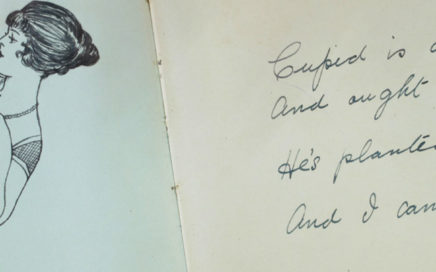 Cupid is a
And ought
He's plante
And I can